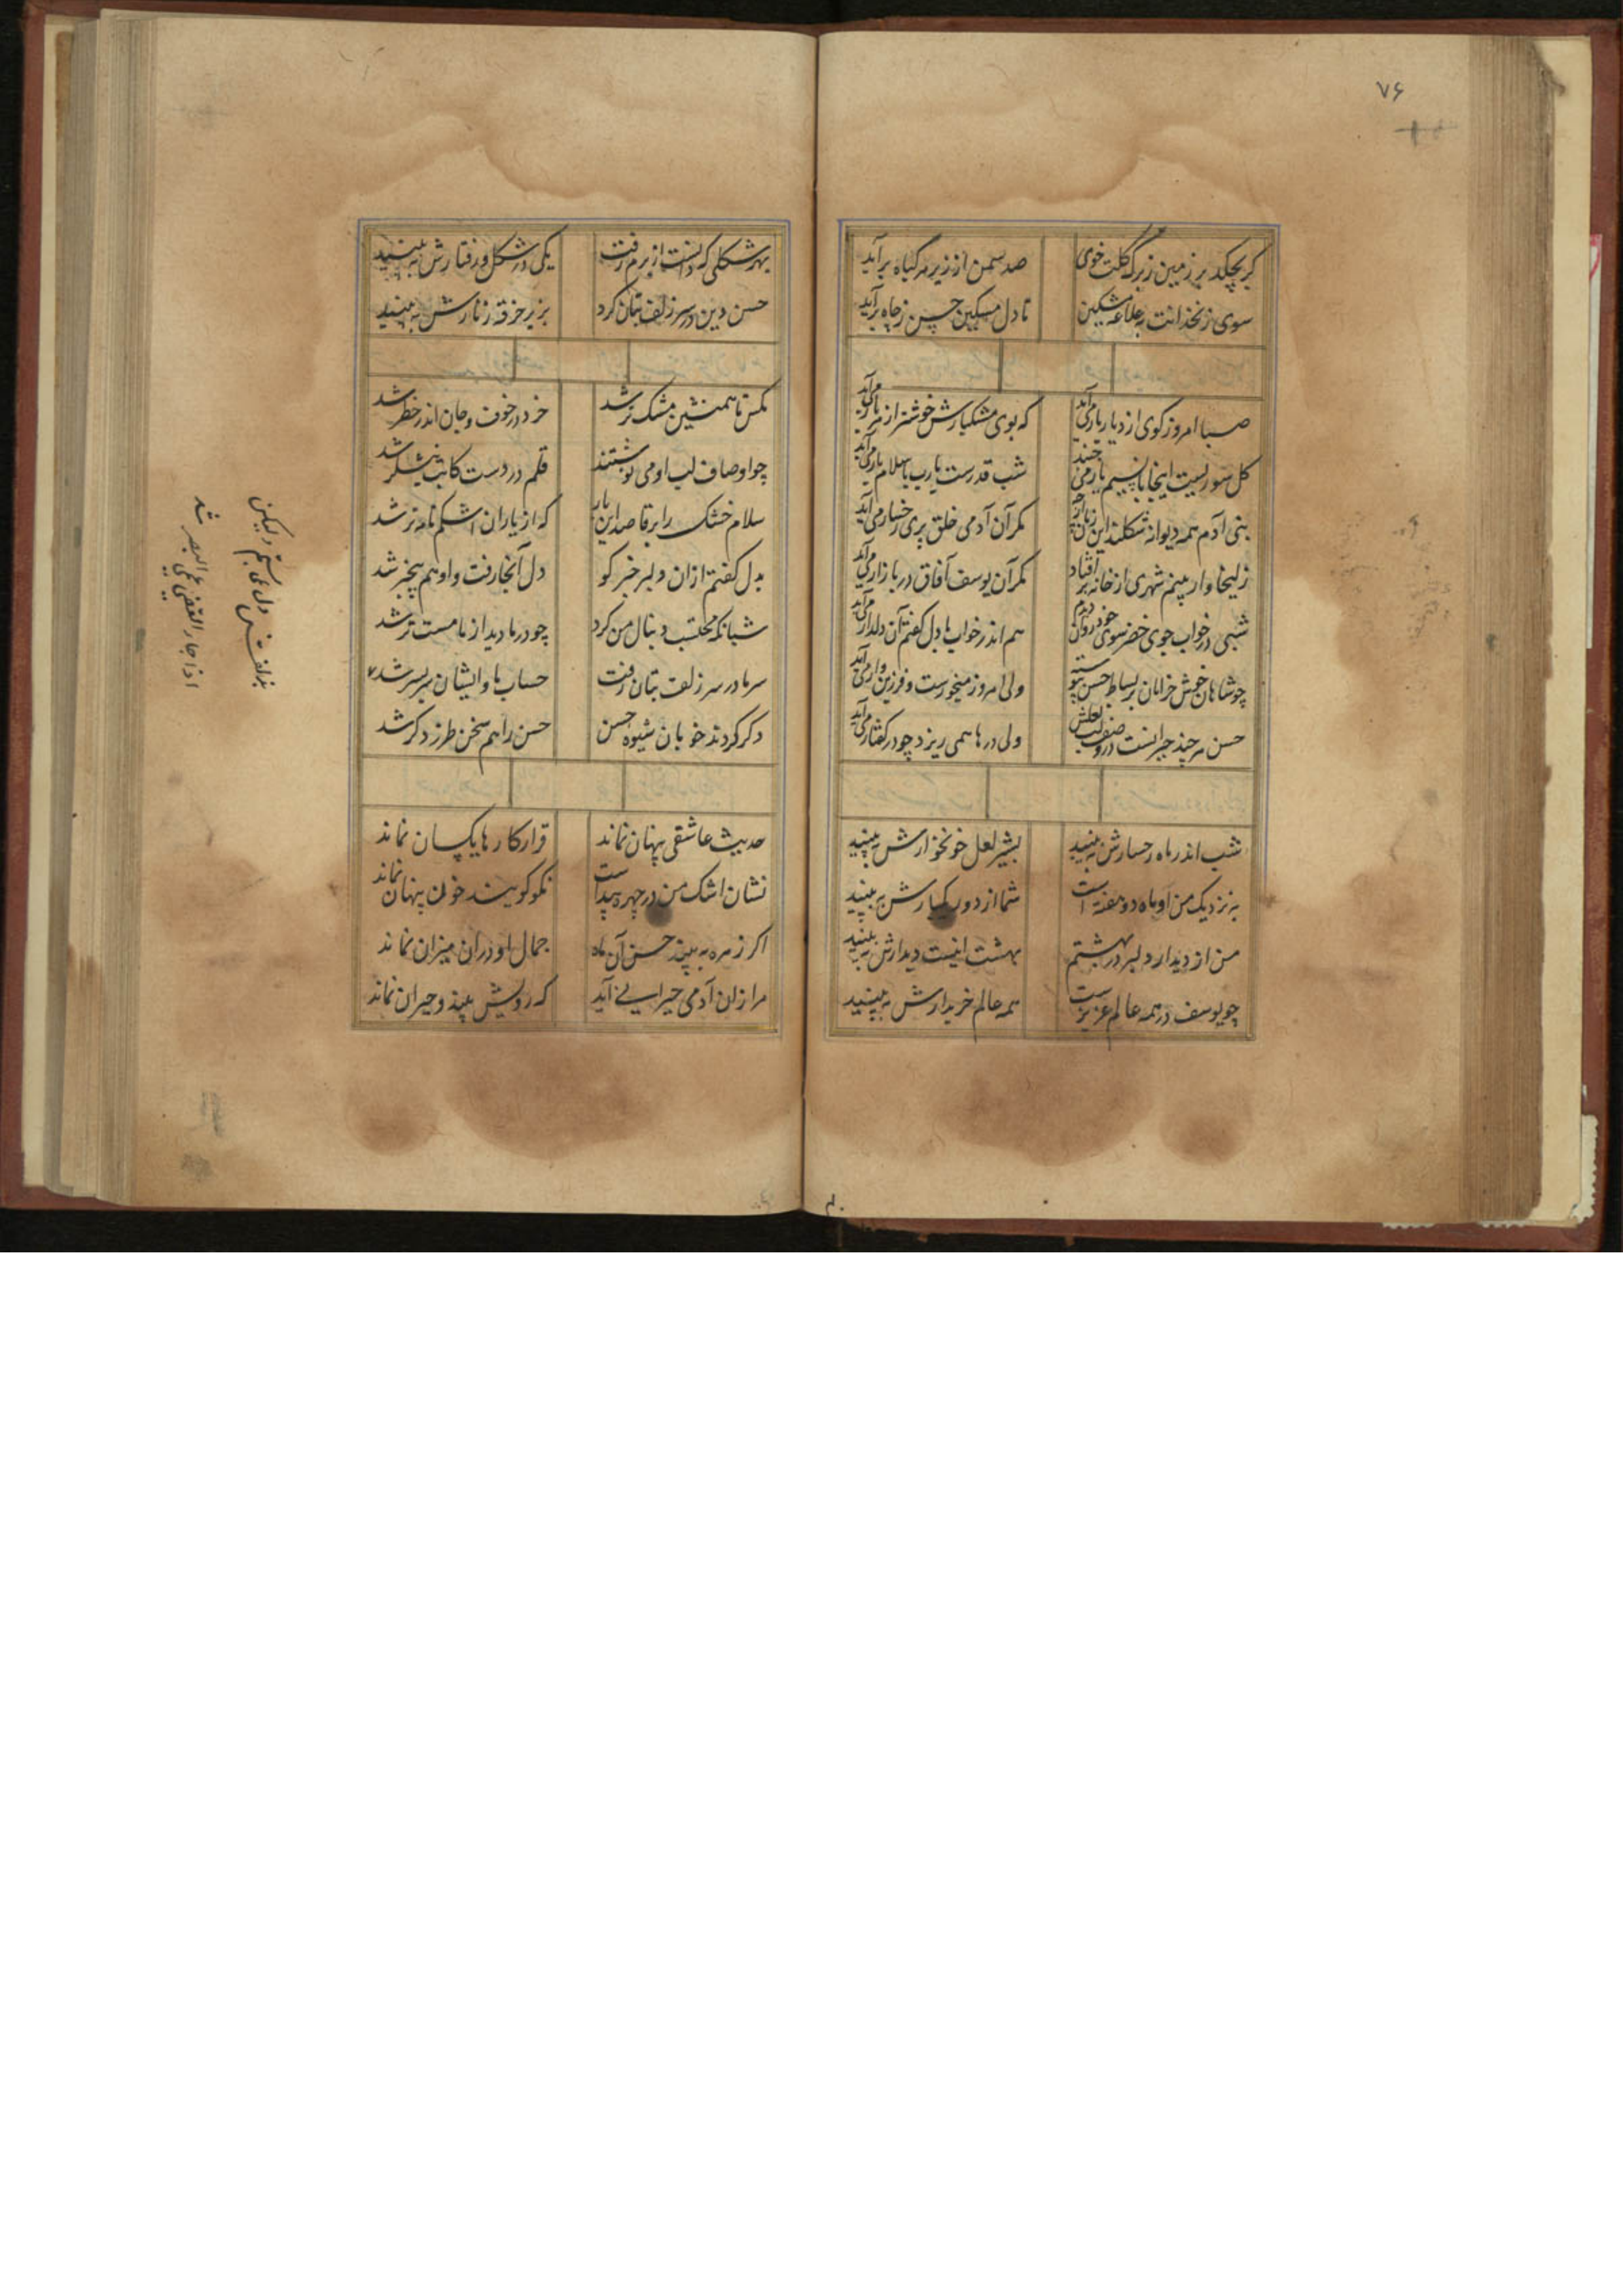 ۷۶
گر بچکد بر زمین ز برگ گلت خوی
صد سمن از زیر هر گیاه برآید
سوی زنخدانت به کلاغه مشکین
تا دل مسکین حسن ز چاه برآید
صبا امروز کوی از دیار یار می آید
که بوی مشکبارش خوشتر از هر بار می آید
شب قدرست یارب با سلام یار می آید
بنی آدم همه دیوانه شکلند این زمان
مکر آن آدمی خلق پری رخسار می آید
زلیخا وار بینم شهری از خانه بر افتاد
مکر آن یوسف آفاق در بازار می آید
شبی در خواب جوی خضر سوی خود روان دیدم
هم اندر خواب با دل گفتم آن دلدار می آید
چو شاهان خوش خرامان بر بساط حسن
ولی امروز و فرزین وار می آید
حسن هر چند حیرانست در وصف لب لعلش
ولی درها همی ریزد چو در کفتار می آید
شب اندر ماه رخسارش ببینید
بشیر لعل خونخوارش ببینید
به نزدیک من او ماه دو هفته است
شما از دور یکبارش ببینید
من از دیدار دلبر در بهشتم
بهشت اینست دیدارش ببینید
چو یوسف در همه عالم عزیزست
همه عالم خریدارش ببینید
بهر شکلی که دانست از برم رفت
یکی در شکل و رفتارش ببینید
حسن دین در سر زلف بتان کرد
بزیر خرقه زنارش ببینید
مکس تا همنشین مشک تر شد
خرد در خوف و جان اندر خطر شد
چو اوصاف لب او می نوشتند
قلم در دست کاتب نیشکر شد
سلام خشک را بر قاصد این بار
که از باران اشکم نامه تر شد
بدل کفتم ازان دلبر خبر کو
دل آنجا رفت و او هم بیخبر شد
شبانکه محتسب دنبال من کرد
چو در ما دید از ما مست تر شد
سر ما در سر زلف بتان رفت
حساب ما و ایشان سر بسر شد
دکر کردند خوبان شیوه حسن
حسن را هم سخن طرز دکر شد
حدیث عاشقی پنهان نماند
قرار کارها یکسان نماند
نشان اشک من در چهره پیداست
نکو کویند خون پنهان نماند
اکر زهره ببیند حسن آن ماه
جمال او دران میزان نماند
مرا زان آدمی حیرانی آید
که رویش بیند و حیران نماند
بزلفش دل همی بستم ولیکن
اذا جاء القضی عمی البصر شد